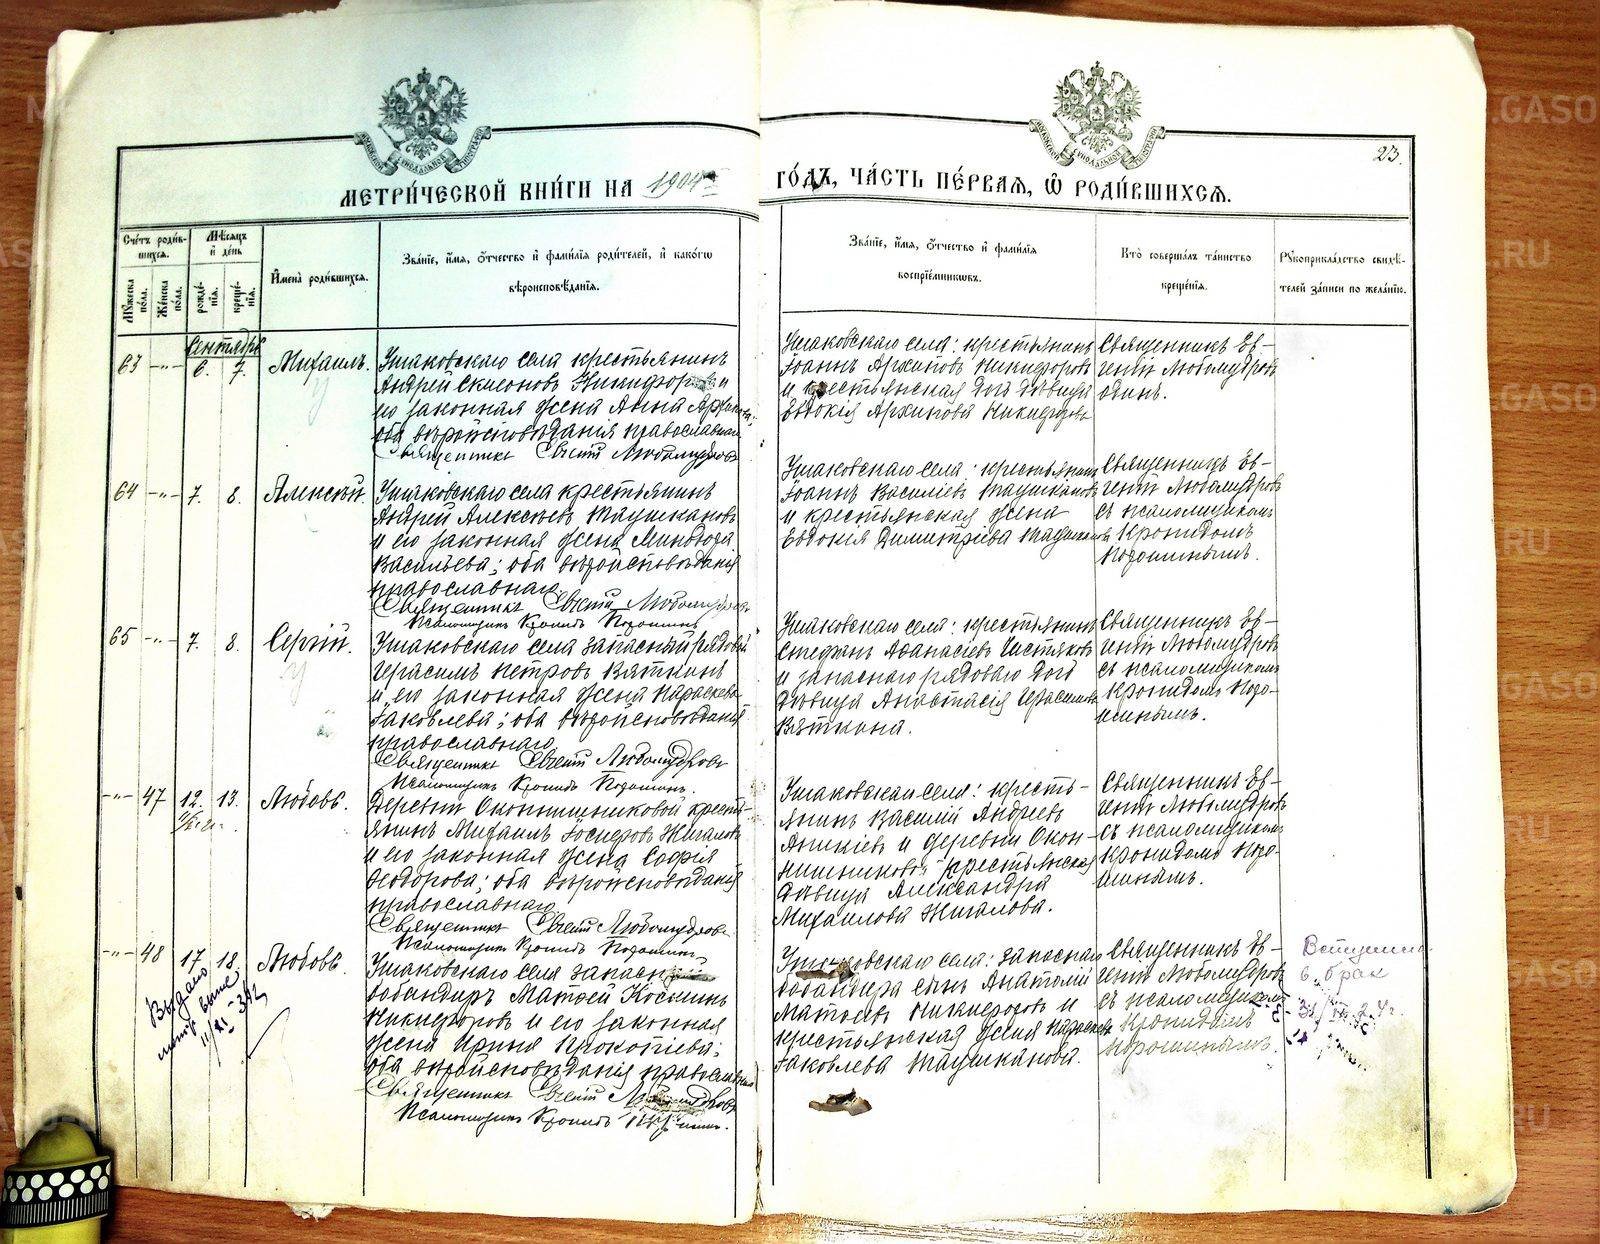 МЕТРИ́ЧЕСКОЙ КНИ́ГИ НА 1904й ГО́ДЪ, ЧА́СТЬ ПЕ́РВАЯ, Ѿ РОДИ́ВШИХСЯ.
23.
Сче́тъ роди́вшихся.
Мѣ́сяцъ и҆ де́нь
Мꙋ́жеска по́ла.
Же́нска по́ла.
рожде́нїя.
креще́нїя.
И҆мена̀ роди́вшихся.
Зва́нїе, и҆́мя, ѻ҆́тчество и҆ фами́лїя роди́телей, и҆ како́гѡ
вѣроисповѣ́данїя.
Зва́нїе, и҆́мя, ѻ҆́тчество и҆ фами́лїя
воспрїе́мникѡвъ.
Кто̀ соверша́лъ та́инство
креще́нїя.
Рꙋкоприкла́дство свидѣ́-
телей за́писи по жела́нїю.
Сентябрь
63 -"- 6. 7. Михаилъ.
Ушаковскаго села крестьянинъ
Андрей Никифоровъ и
его законная жена Анна
оба вѣроисповѣданія православнаго
Священникъ Евгеній Любомудровъ
Ушаковскаго села: крестьянинъ
Іоаннъ Архиповъ Никифоровъ
и крестьянская дочь дѣвица
Евдокія Архипова Никифорова
Священникъ Ев-
геній Любомудровъ
одинъ.
64 -"- 7. 8. Алексѣй.
Ушаковскаго села крестьянинъ
Андрей Алексѣевъ Таушкановъ
и его законная жена
Васильева; оба вѣроисповѣданія
православнаго
Священникъ Евгеній Любомудровъ
Псаломщикъ Кронидъ Порошинъ
Ушаковскаго села: крестьянинъ
Іоаннъ Василіевъ Таушкановъ
и крестьянская жена
Евдокія Димитріева
Священникъ Ев-
геній Любомудровъ
съ псаломщикомъ
Кронидомъ
Порошинымъ.
65 -"- 7. 8. Сергій.
Ушаковскаго села запасный рядовой
Герасимъ Петровъ Вяткинъ
и его законная жена Параскева
Іаковлева; оба вѣроисповѣданія
православнаго
Священникъ Евгеній Любомудровъ
Псаломщикъ Кронидъ Порошинъ.
Ушаковскаго села: крестьянинъ
Стефанъ Аѳанасіевъ Чистяковъ
и запаснаго рядоваго дочь
дѣвица Анастасія Герасимова
Вяткина.
Священникъ Ев-
геній Любомудровъ
съ псаломщикомъ
Кронидомъ Поро-
шинымъ.
-"- 47 12. 13. Любовь.
Деревни Оконишниковой кресть-
янинъ Михаилъ Іосифовъ Жигаловъ
и его законная жена Софія
Ѳеодорова; оба вѣроисповѣданія
православнаго
Священникъ Евгеній Любомудровъ
Псаломщикъ Кронидъ Порошинъ
Ушаковскаго села: кресть-
янинъ Василій Андреевъ
Аникіевъ и деревни Окон-
ишниковой крестьянская
дѣвица Александра
Михаилова Жигалова.
Священникъ Ев-
геній Любомудровъ
съ псаломщикомъ
Кронидомъ Поро-
шинымъ.
-"- 48 17 18. Любовь.
Ушаковскаго села запасный
бомбандиръ Матѳей Косминъ
Никифоровъ и его законная
жена Ирина Прокопіева;
оба вѣроисповѣданія православнаго
Священникъ Евгеній Любомудровъ
Псаломщикъ Кронидъ
Ушаковскаго села: запаснаго
бомбандира сынъ Анатолій
Матѳеевъ Никифоровъ и
крестьянская жена Параскева
Іаковлева Таушканова.
Священникъ Ев-
геній Любомудровъ
съ псаломщикомъ
Кронидомъ
Порошинымъ.
в брак